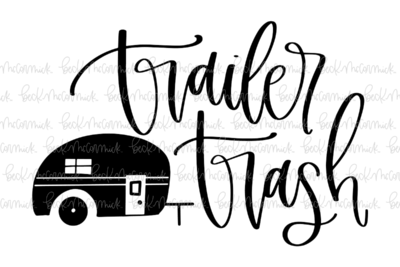 trailer
trash